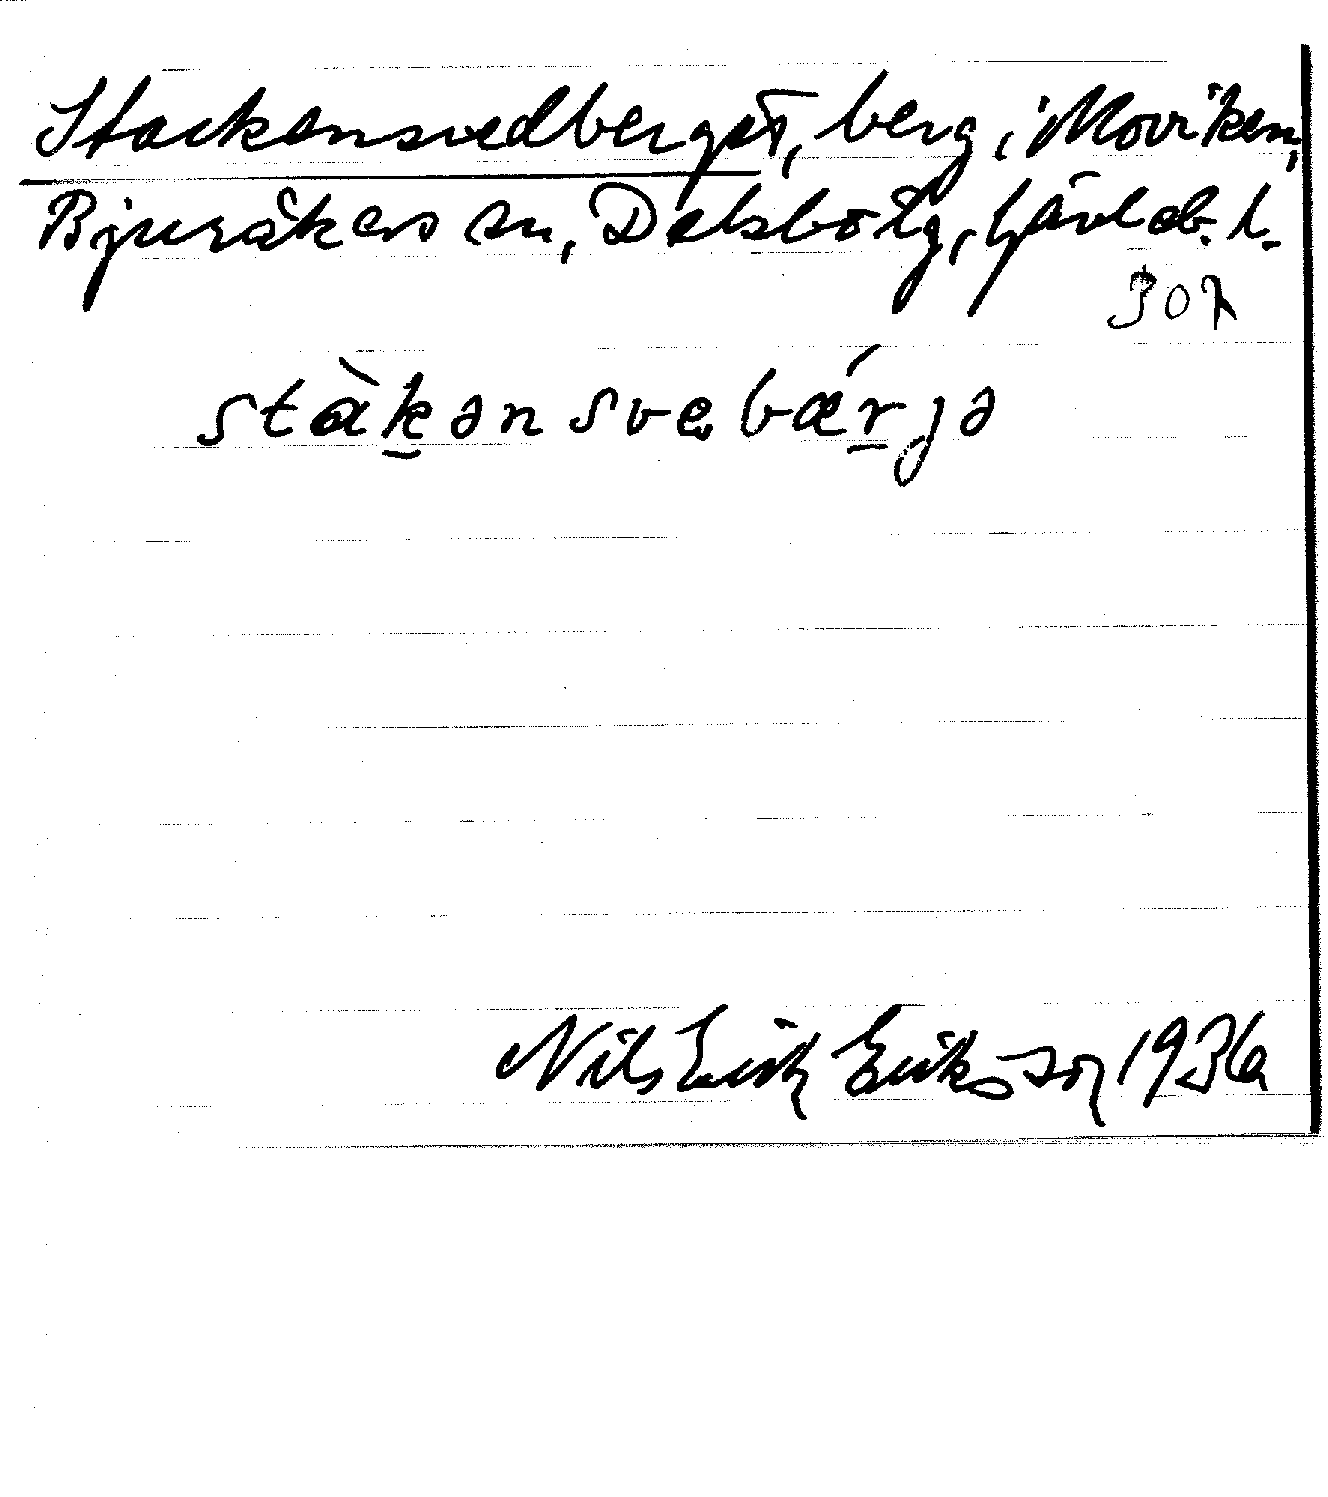 Stackensvedberget, berg i Moviken,
Bjuråkers sn, Delsbo tg, Gävleb. l.
307
stàk̲ənsvebǽr̲jə
Nils Erik Eriksson 1936